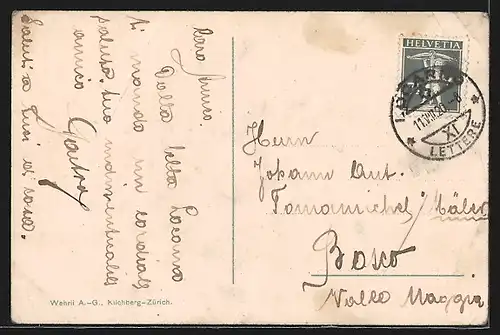 Caro Amico.
Dalla bella Locarno
ti mando un cordiale
saluto. tuo indimenticabile
amico
Saluti a tuoi di casa.
HELVETIA
LOCARNO
11.VIII.20.-8
XI
LETTERE
Herrn
Johann Ant.
Tomamichel
Bosco
Valle Maggia
Wehrli A.-G., Kilchberg-Zürich.